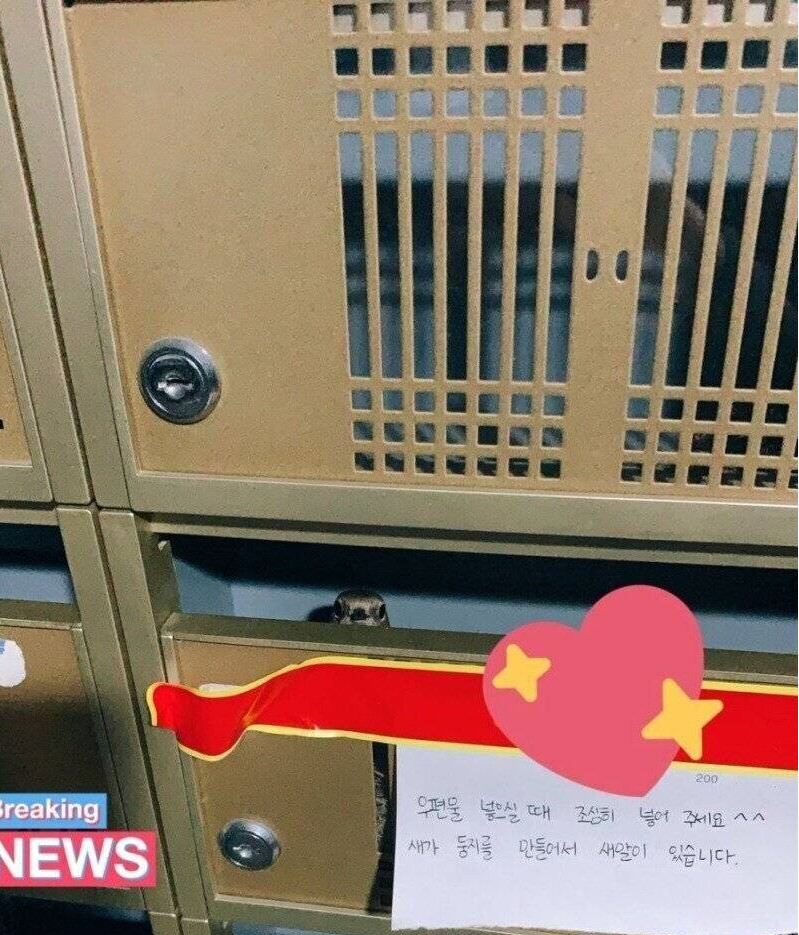 200
우편물 넣으실 때 조심히 넣어 주세요 ^^
새가 둥지를 만들어서 새알이 있습니다.
Breaking
NEWS